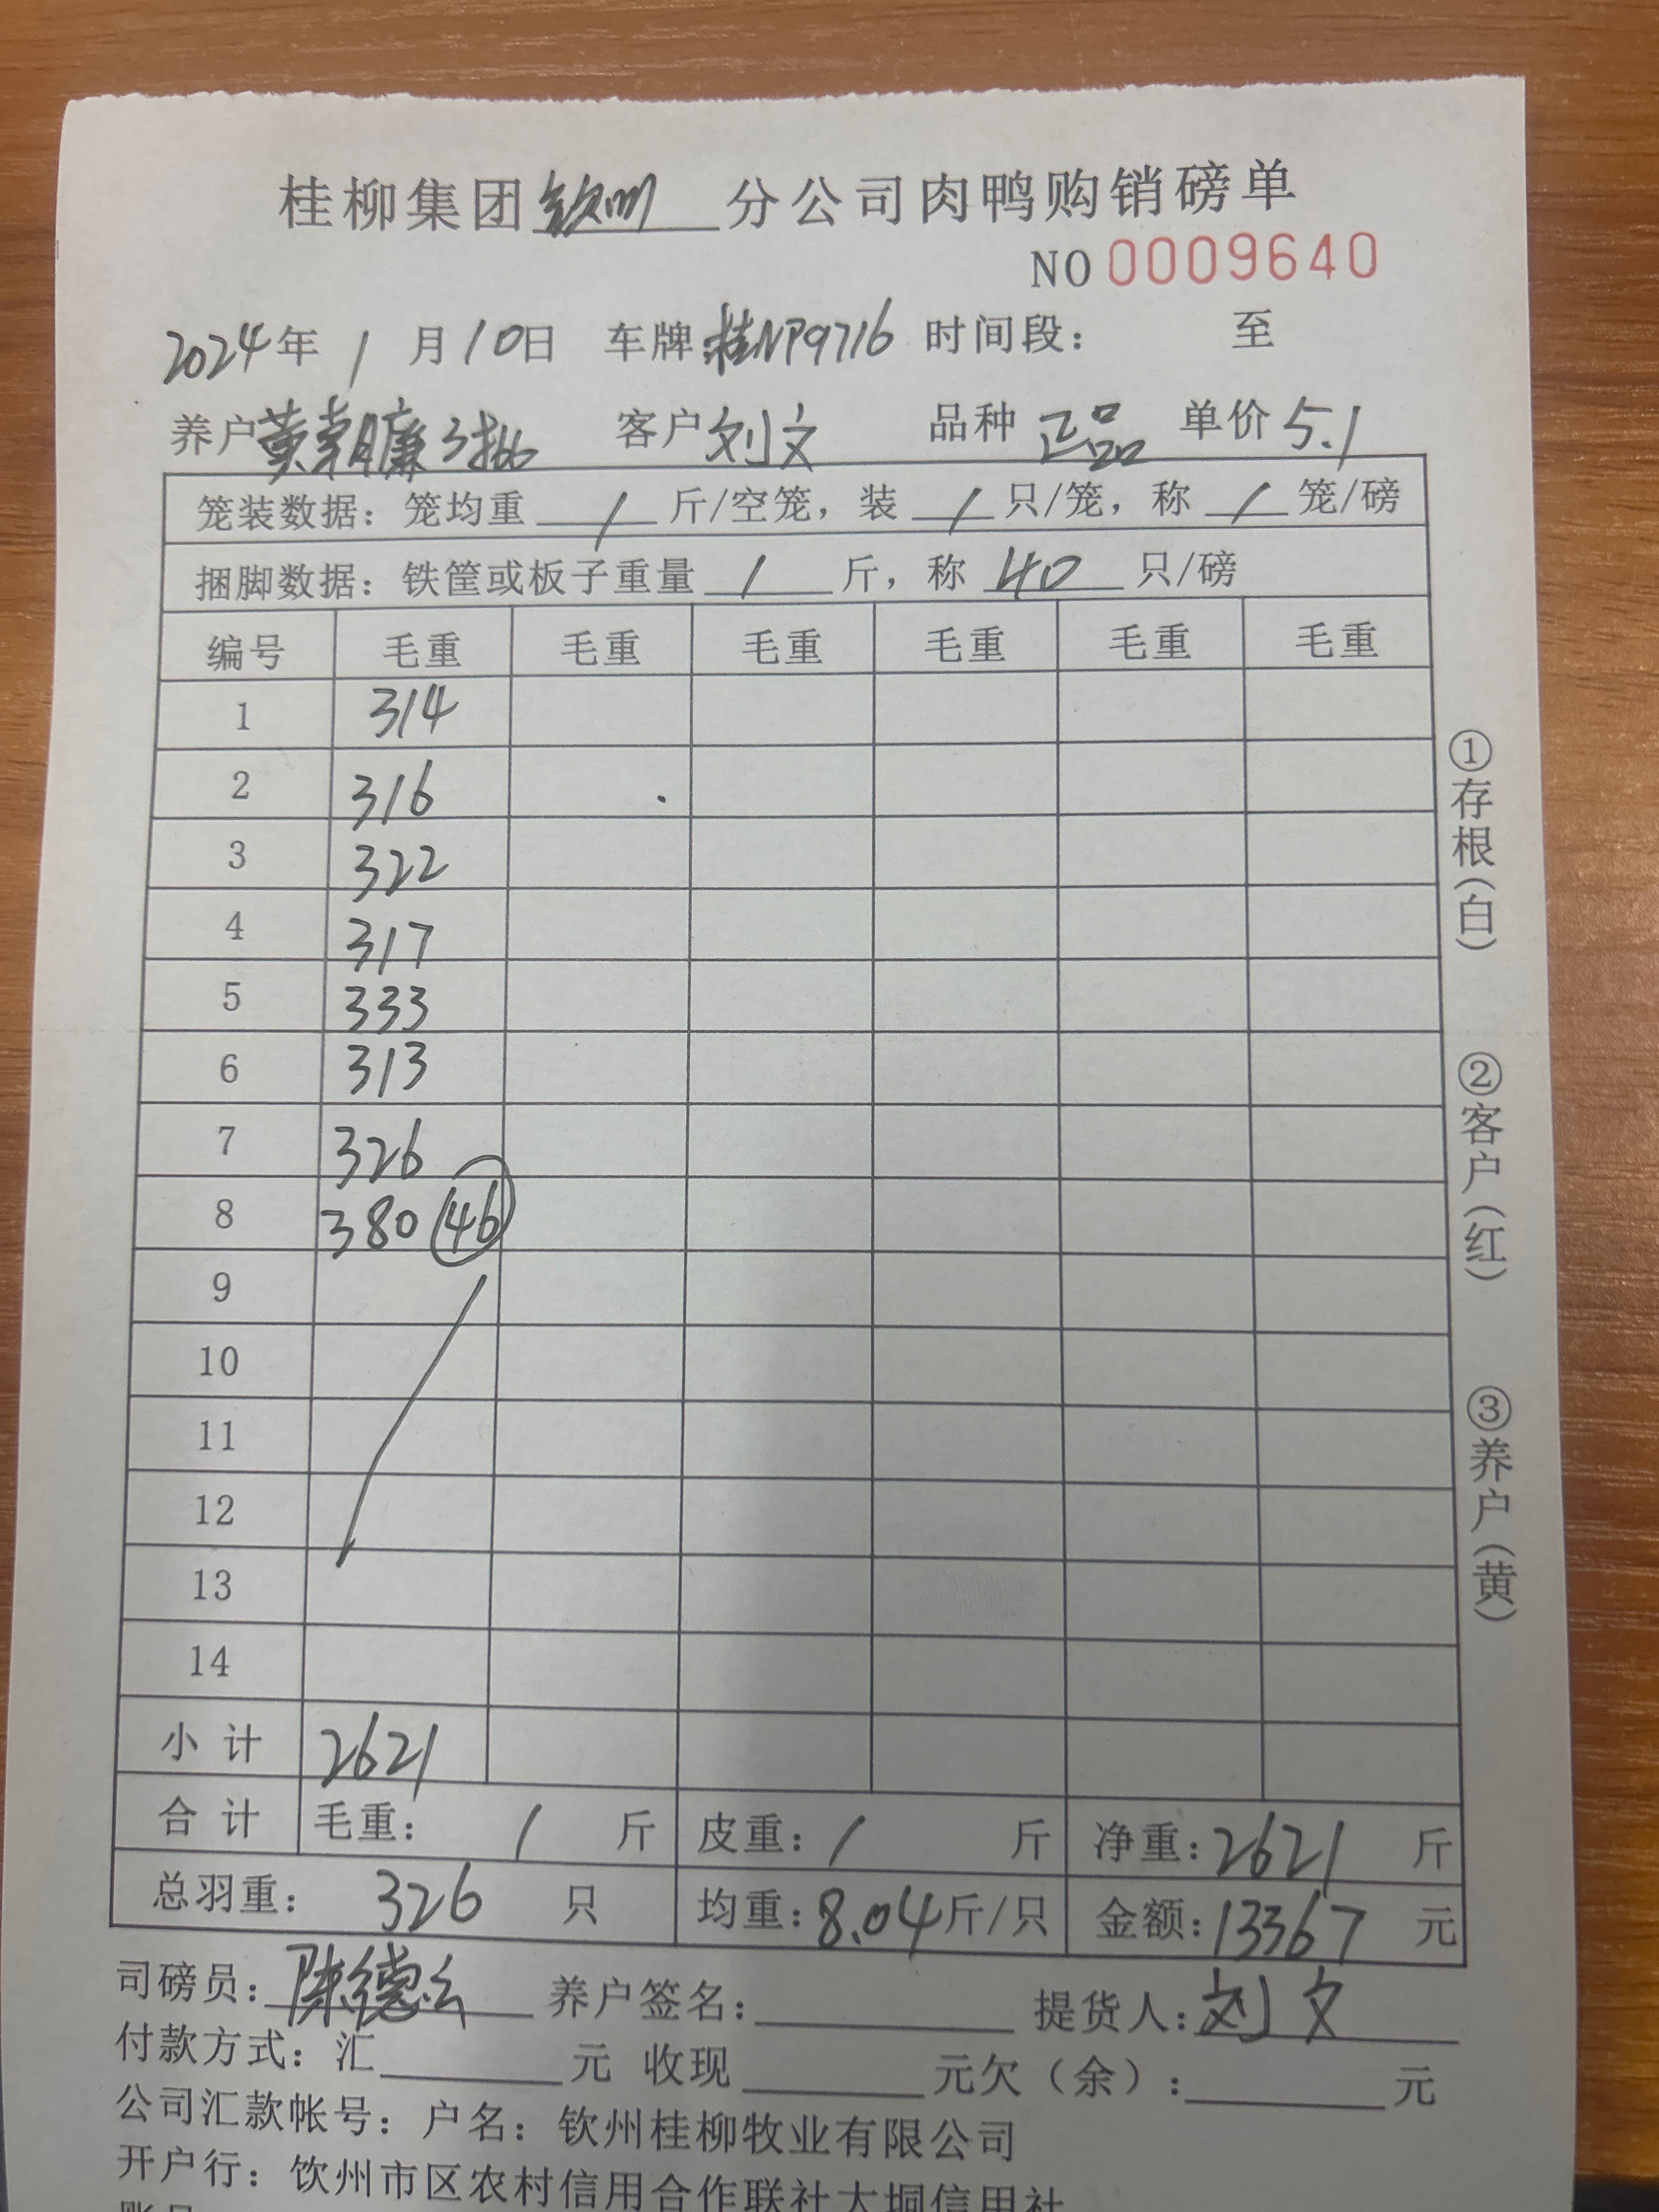 桂柳集团钦州分公司肉鸭购销磅单
NO 0009640
2024年 1 月 10日 车牌:桂NP9716 时间段: 至
养户黄朝廉3批 客户刘文 品种 正品 单价5.1
笼装数据: 笼均重 / 斤/空笼, 装 / 只/笼, 称 / 笼/磅
捆脚数据: 铁筐或板子重量 / 斤, 称 40 只/磅
编号 毛重 毛重 毛重 毛重 毛重 毛重
1 314
2 316
3 322
4 317
5 333
6 313
7 326
8 380 (46)
9
10
11
12
13
14
小计 2621
合计 毛重: / 斤 皮重: / 斤 净重: 2621 斤
总羽重: 326 只 均重: 8.04斤/只 金额: 13367 元
司磅员: 陈德 养户签名: 提货人: 刘文
付款方式: 汇 元 收现 元欠(余): 元
公司汇款帐号: 户名: 钦州桂柳牧业有限公司
开户行: 钦州市区农村信用合作联社大垌信用社
①存根(白)
②客户(红)
③养户(黄)